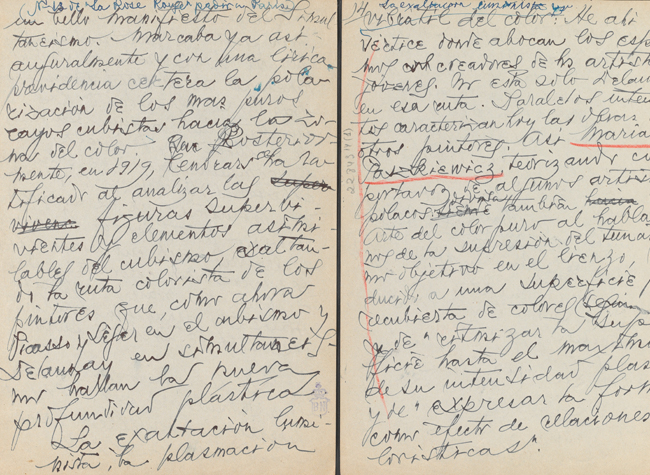 Nº 13 de La Rose Rouge
un bello manifiesto del Simul
taneismo. Marcaba ya asi
auguralmente y con una lirica
providencia certera la pola
rización de los mas puros
rayos cubistas hacia la zo-
na del color. Que Posterior
mente, en 1919, Cendrars ha ra
tificado al analizar las
figuras supervi-
vientes y elementos asimi-
lables del cubismo, exaltan-
do la ruta colorista de los
pintores que, como ahora
Picasso y Léger en el cubismo y
Delaunay en simultaneis-
mo hallan la nueva
profundidad plástica
La exaltación lumi-
nista, la plasmación
14 La exaltación luminista
vibratil del color: He ahi
vértice donde abocan los espas
mos creadores de los artistas
jóvenes. No está solo Delaunay
en esa ruta. Paralelos inten
tos caracterizan hoy las obras
otros pintores. Asi Maria
teorizando co
portavoz de algunos artis
polacos también
arte del color puro al habla
nos de la supresion del
mo objetivo en el lienzo,
a una superficie
recubierta de colores
y de "ritmizar la super
ficie hasta el maximo
de su intensidad plas
y de "expresar la form
como efecto de relaciones
loristicas".
223451(6)